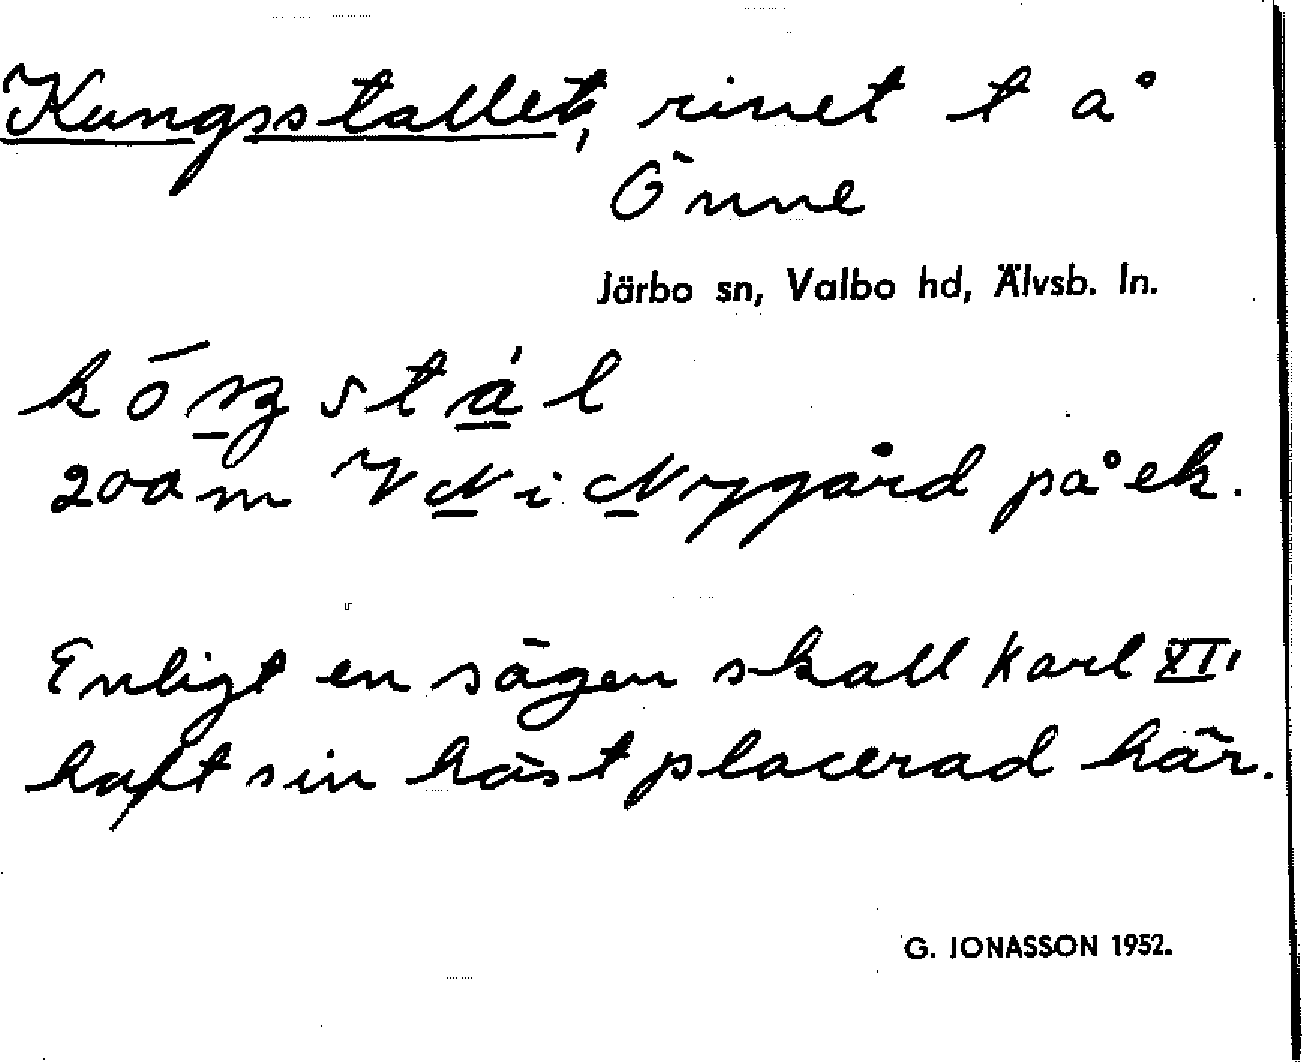 Kungsstallet, rivet t å
Önne
Järbo sn, Valbo hd, Älvsb. ln.
200 m V N i Nygård på ek.
Enligt en sägen skall Karl XII
haft sin häst placerad här.
G. JONASSON 1952.